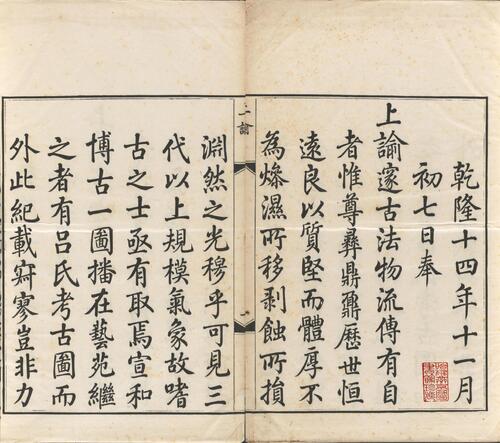 乾隆十四年十一月
初七日奉
上諭邃古法物流傳有自
者惟尊彞鼎鼐歷世恒
遠良以質堅而體厚不
為燥濕所移剥蝕所損
上諭
淵然之光穆乎可見三
代以上規模氣象故嗜
古之士亟有取焉宣和
博古一圖播在藝苑繼
之者有吕氏考古圖而
外此紀載寂寥豈非力